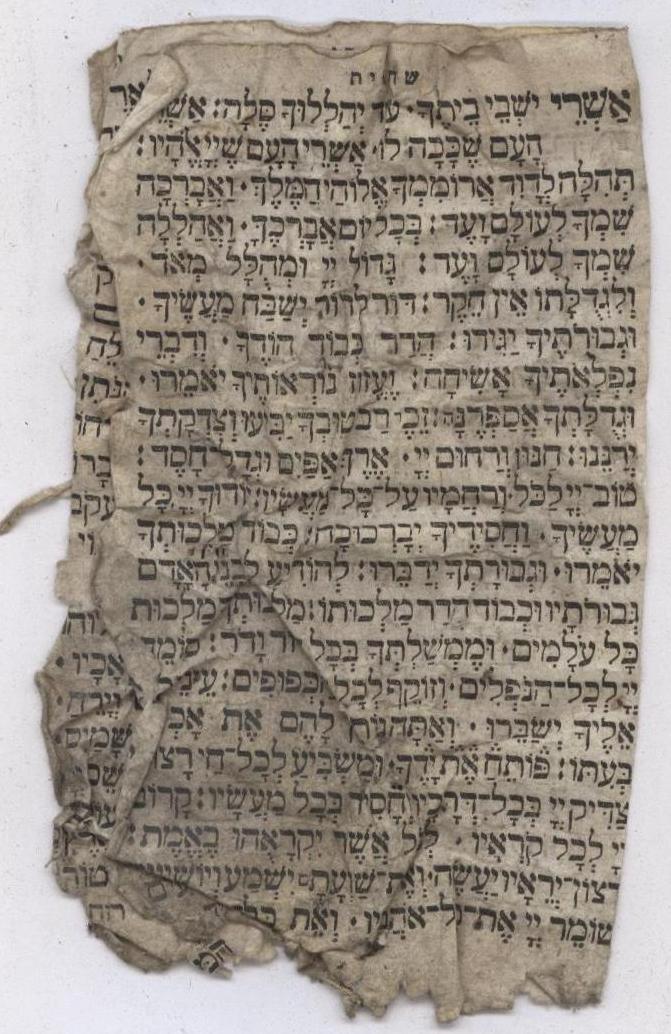 שחרית
אַשְׁרֵי יֹשְׁבֵי בֵיתֶךָ · עוֹד יְהַלְלוּךָ סֶּלָה: אַשְׁרֵי
הָעָם שֶׁכָּכָה לּוֹ · אַשְׁרֵי הָעָם שֶׁיְיָ אֱלֹהָיו:
תְּהִלָּה לְדָוִד אֲרוֹמִמְךָ אֱלוֹהַי הַמֶּלֶךְ · וַאֲבָרְכָה
שִׁמְךָ לְעוֹלָם וָעֶד: בְּכָל יוֹם אֲבָרְכֶךָּ · וַאֲהַלְלָה
שִׁמְךָ לְעוֹלָם וָעֶד: גָּדוֹל יְיָ וּמְהֻלָּל מְאֹד ·
וְלִגְדֻלָּתוֹ אֵין חֵקֶר: דּוֹר לְדוֹר יְשַׁבַּח מַעֲשֶׂיךָ ·
וּגְבוּרֹתֶיךָ יַגִּידוּ: הֲדַר כְּבוֹד הוֹדֶךָ · וְדִבְרֵי
נִפְלְאֹתֶיךָ אָשִׂיחָה: וֶעֱזוּז נוֹרְאוֹתֶיךָ יֹאמֵרוּ ·
וּגְדֻלָּתְךָ אֲסַפְּרֶנָּה: זֵכֶר רַב טוּבְךָ יַבִּיעוּ וְצִדְקָתְךָ
יְרַנֵּנוּ: חַנּוּן וְרַחוּם יְיָ · אֶרֶךְ אַפַּיִם וּגְדָל־חָסֶד:
טוֹב־יְיָ לַכֹּל · וְרַחֲמָיו עַל־כָּל־מַעֲשָׂיו: יוֹדוּךָ יְיָ כָּל
מַעֲשֶׂיךָ · וַחֲסִידֶיךָ יְבָרְכוּכָה: כְּבוֹד מַלְכוּתְךָ
יֹאמֵרוּ · וּגְבוּרָתְךָ יְדַבֵּרוּ: לְהוֹדִיעַ לִבְנֵי הָאָדָם
גְּבוּרֹתָיו וּכְבוֹד הֲדַר מַלְכוּתוֹ: מַלְכוּתְךָ מַלְכוּת
כָּל עֹלָמִים · וּמֶמְשַׁלְתְּךָ בְּכָל דּוֹר וָדֹר: סוֹמֵךְ
יְיָ לְכָל־הַנֹּפְלִים · וְזוֹקֵף לְכָל הַכְּפוּפִים: עֵינֵי
אֵלֶיךָ יְשַׂבֵּרוּ · וְאַתָּה נוֹתֵן לָהֶם אֶת
בְּעִתּוֹ: פּוֹתֵחַ אֶת יָדֶךָ · וּמַשְׂבִּיעַ לְכָל־חַי רָצוֹן
צַדִּיק יְיָ בְּכָל־דְּרָכָיו וְחָסִיד בְּכָל מַעֲשָׂיו: קָרוֹב
יְיָ לְכָל קֹרְאָיו · לְכֹל אֲשֶׁר יִקְרָאֻהוּ בֶאֱמֶת:
רְצוֹן־יְרֵאָיו יַעֲשֶׂה · וְאֶת־שַׁוְעָתָם יִשְׁמַע וְיוֹשִׁיעֵם
שׁוֹמֵר יְיָ אֶת־כָּל־אֹהֲבָיו · וְאֵת כָּל